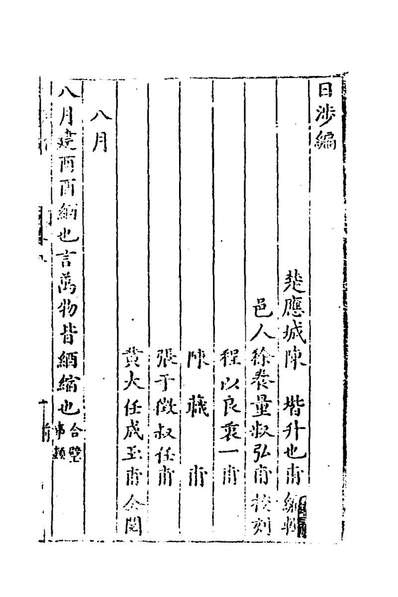 日涉編
楚應城陳堦升也甫編輯
邑人徐養量叔弘甫校刻
程以良袠一甫
陳蕆甫
張于徵叔任甫
黃大任成玉甫仝閱
八月
八月建酉酉緧也言萬物皆緧縮也合璧事類